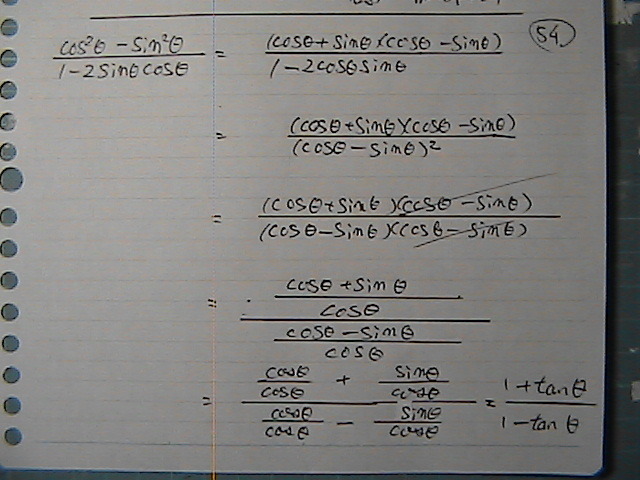 54.
cos²θ - sin²θ / 1 - 2sinθcosθ = (cosθ + sinθ)(cosθ - sinθ) / 1 - 2cosθsinθ
= (cosθ + sinθ)(cosθ - sinθ) / (cosθ - sinθ)²
= (cosθ + sinθ)(cosθ - sinθ) / (cosθ - sinθ)(cosθ - sinθ)
= cosθ + sinθ / cosθ / cosθ - sinθ / cosθ
= cosθ / cosθ + sinθ / cosθ / cosθ / cosθ - sinθ / cosθ = 1 + tanθ / 1 - tanθ